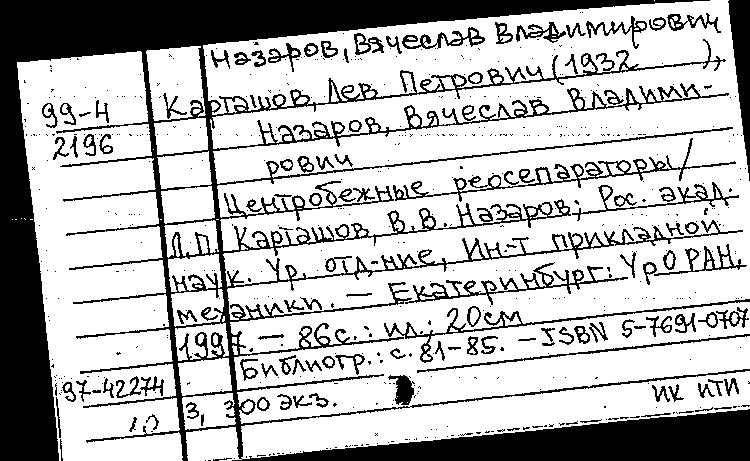 Назаров, Вячеслав Владимирович
99-4
2196
Карташов, Лев Петрович (1932 ),
Назаров, Вячеслав Владими-
рович
Центробежные реосепараторы /
Л.П. Карташов, В.В. Назаров; Рос. акад.
наук. Ур. отд-ние, Ин-т прикладной
механики. — Екатеринбург: УрО РАН,
1997. — 86 с. : ил. ; 20 см
Библиогр.: с. 81-85. — JSBN 5-7691-0707
97-42274
10
3, 300 экз.
ИК ИТИ